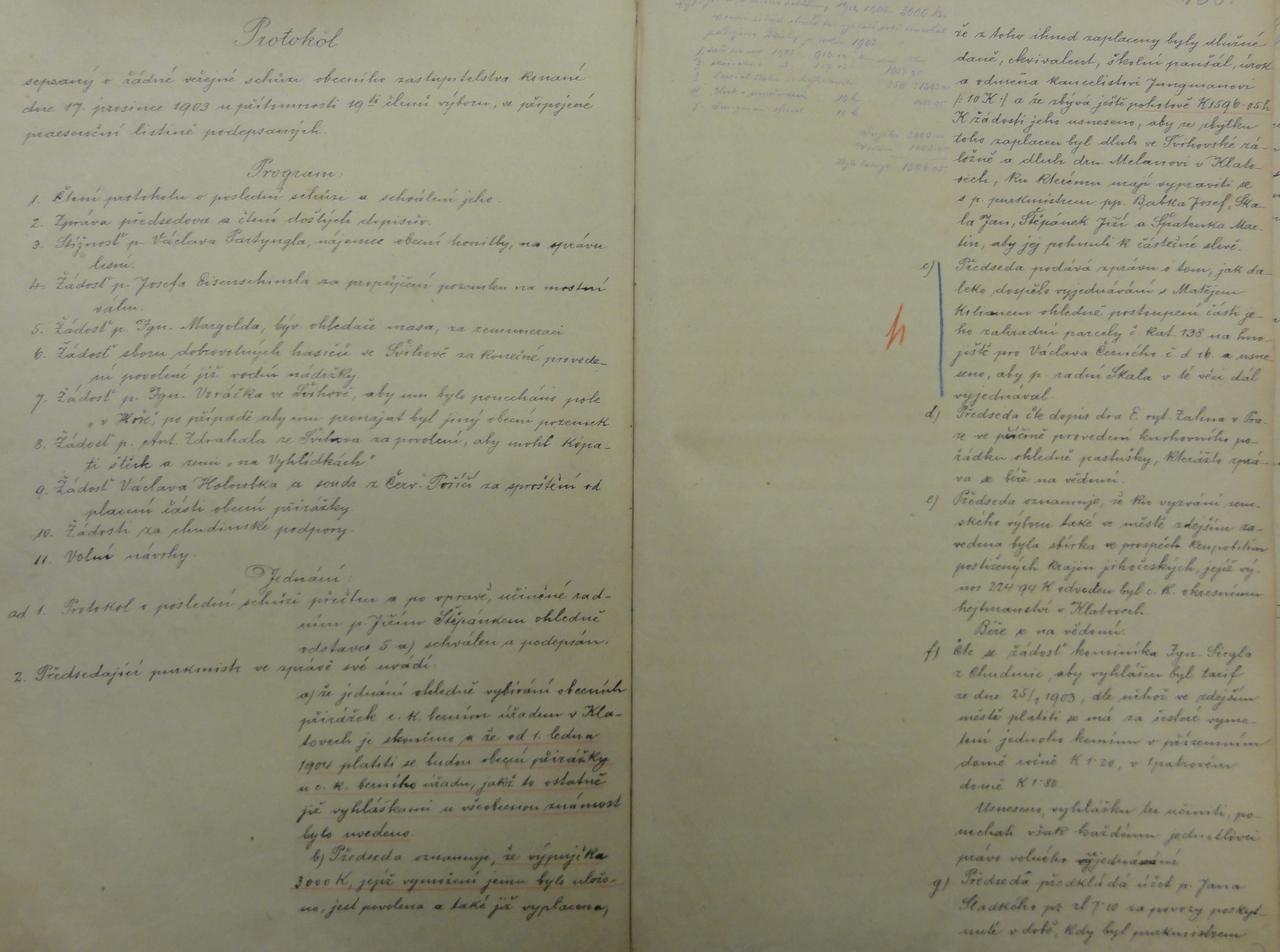 Protokol
sepsaný o řádné veřejné schůzi obecního zastupitelstva konané
dne 17. prosince 1903 u přítomnosti 19ti členů výboru, v připojené
praesenční listině podepsaných.
Program:
1. Čtení protokolu o poslední schůze a schválení jeho.
2. Zpráva předsedova a čtení došlých dopisův.
3. Stížnost p. Václava Partyngla, nájemce obecní honitby, na správu
lesní.
4. Žádost p. Josefa Eisenschimla za propůjčení pozemku na mostní
váhu.
5. Žádost p. Ign. Margolda, býv. ohledače masa, za remuneraci
6. Žádost sboru dobrovolných hasičů ve Švihově za konečné provede-
ní povolené již vodní nádržky.
7. Žádost p. Ign. Voráčka ve Švihově, aby mu bylo ponecháno pole
po případě aby mu pronajat byl jiný obecní pozemek
8. Žádost p. Ant. Zdrahala ze Švihova za povolení, aby mohl kopa-
ti štěrk a zemi „na Vyhlídkách"
9. Žádost Václava Holoubka a soudr. z Červ. Poříčí za sproštění od
placení části obecní přirážky.
10. Žádosti za chudinské podpory.
11. Volné návrhy.
Jednání:
ad 1. Protokol o poslední schůzi přečten a po opravě, učiněné rad-
ním p. Jiřím Štěpánkem ohledně
odstavce 5 a) schválen a podepsán.
2. Předsedající purkmistr ve zprávě své uvádí:
a) že jednání ohledně vybírání obecních
přirážek c. k. berním úřadem v Kla-
tovech je skončeno a že od 1. ledna
1904 platiti se budou obecní přirážky
u c. k. berního úřadu, jakž to ostatně
již vyhláškami u všeobecnou známost
bylo uvedeno.
b) Předseda oznamuje, že výpůjčka
3000 K, jejíž vymožení jemu bylo ulože-
no, jest povolena a také již vyplacena,
že z toho ihned zaplaceny byly dlužné
daně, ekvivalent, školní paušál, úrok
a odměna kancelistovi Jungmanovi
/: 10 K :/ a že zbývá ještě pohotově K 1596.05 h
K žádosti jeho usneseno, aby ze zbytku
toho zaplacen byl dluh ve Švihovské zá-
ložně a dluh dru Melanovi v Klato-
vech, ku kterému mají vypraviti se
s p. purkmistrem pp. Babka Josef, Ska-
la Jan, Štěpánek Jiří a Špatenka Mar-
tin, aby jej pohnuli k částečné slevě.
c) Předseda podává zprávu o tom, jak da-
leko dospělo vyjednávání s Matějem
Kilianem ohledně postoupení části je-
ho zahradní parcely č kat. 138 na hno-
jiště pro Václava Černého č d 16. a usne-
seno, aby p. radní Skala v té věci dál
vyjednával.
d) Předseda čte dopis dra E. ryt. Zahna v Pra-
ze ve příčině provedení knihovního po-
řádku ohledně pastušky, kterážto zprá-
va se béře na vědomí.
e) Předseda oznamuje, že ku vyzvání zem-
ského výboru také ve městě zdejším za-
vedena byla sbírka ve prospěch krupobitím
postižených krajin jihočeských, jejíž vý-
nos 224.94 K odveden byl c. k. okresnímu
hejtmanství v Klatovech.
Béře se na vědomí.
f) Čte se žádost kominíka Ign. Siegla
z Chudenic, aby vyhlášen byl tarif
ze dne 1903, dle něhož ve zdejším
městě platiti se má za čestné vyme-
tení jednoho komínu v přízemním
domě ročně K 1.20, v 1patrovém
domě K 1.80.
Usneseno, vyhlášku tu učiniti, po-
nechati však každému jednotlivci
právo volného vyjednávání
g) Předseda předkládá účet p. Jana
Sladkého pr zl 7.10 za povozy poskyt-
nuté v době, kdy byl purkmistrem